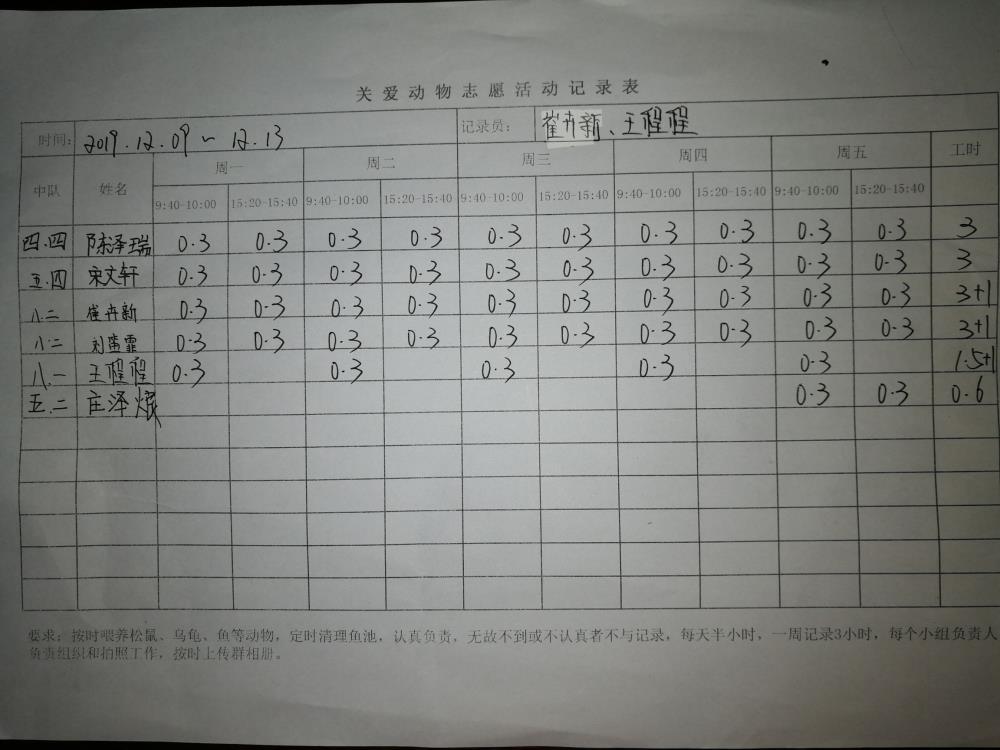 关爱动物志愿活动记录表
时间: 2019.12.09~12.13 记录员: 崔卉新、王程程
中队 姓名 周一 周二 周三 周四 周五 工时
9:40-10:00 15:20-15:40 9:40-10:00 15:20-15:40 9:40-10:00 15:20-15:40 9:40-10:00 15:20-15:40 9:40-10:00 15:20-15:40
四.四 陈泽瑞 0.3 0.3 0.3 0.3 0.3 0.3 0.3 0.3 0.3 0.3 3
五.四 宋文轩 0.3 0.3 0.3 0.3 0.3 0.3 0.3 0.3 0.3 0.3 3
八.二 崔卉新 0.3 0.3 0.3 0.3 0.3 0.3 0.3 0.3 0.3 0.3 3+1
八.二 刘霏 0.3 0.3 0.3 0.3 0.3 0.3 0.3 0.3 0.3 0.3 3+1
八.一 王程程 0.3 0.3 0.3 0.3 0.3 1.5+1
五.二 庄泽 0.3 0.3 0.6
要求: 按时喂养松鼠、乌龟、鱼等动物，定时清理鱼池，认真负责，无故不到或不认真者不与记录，每天半小时，一周记录3小时，每个小组负责人
负责组织和拍照工作，按时上传群相册。